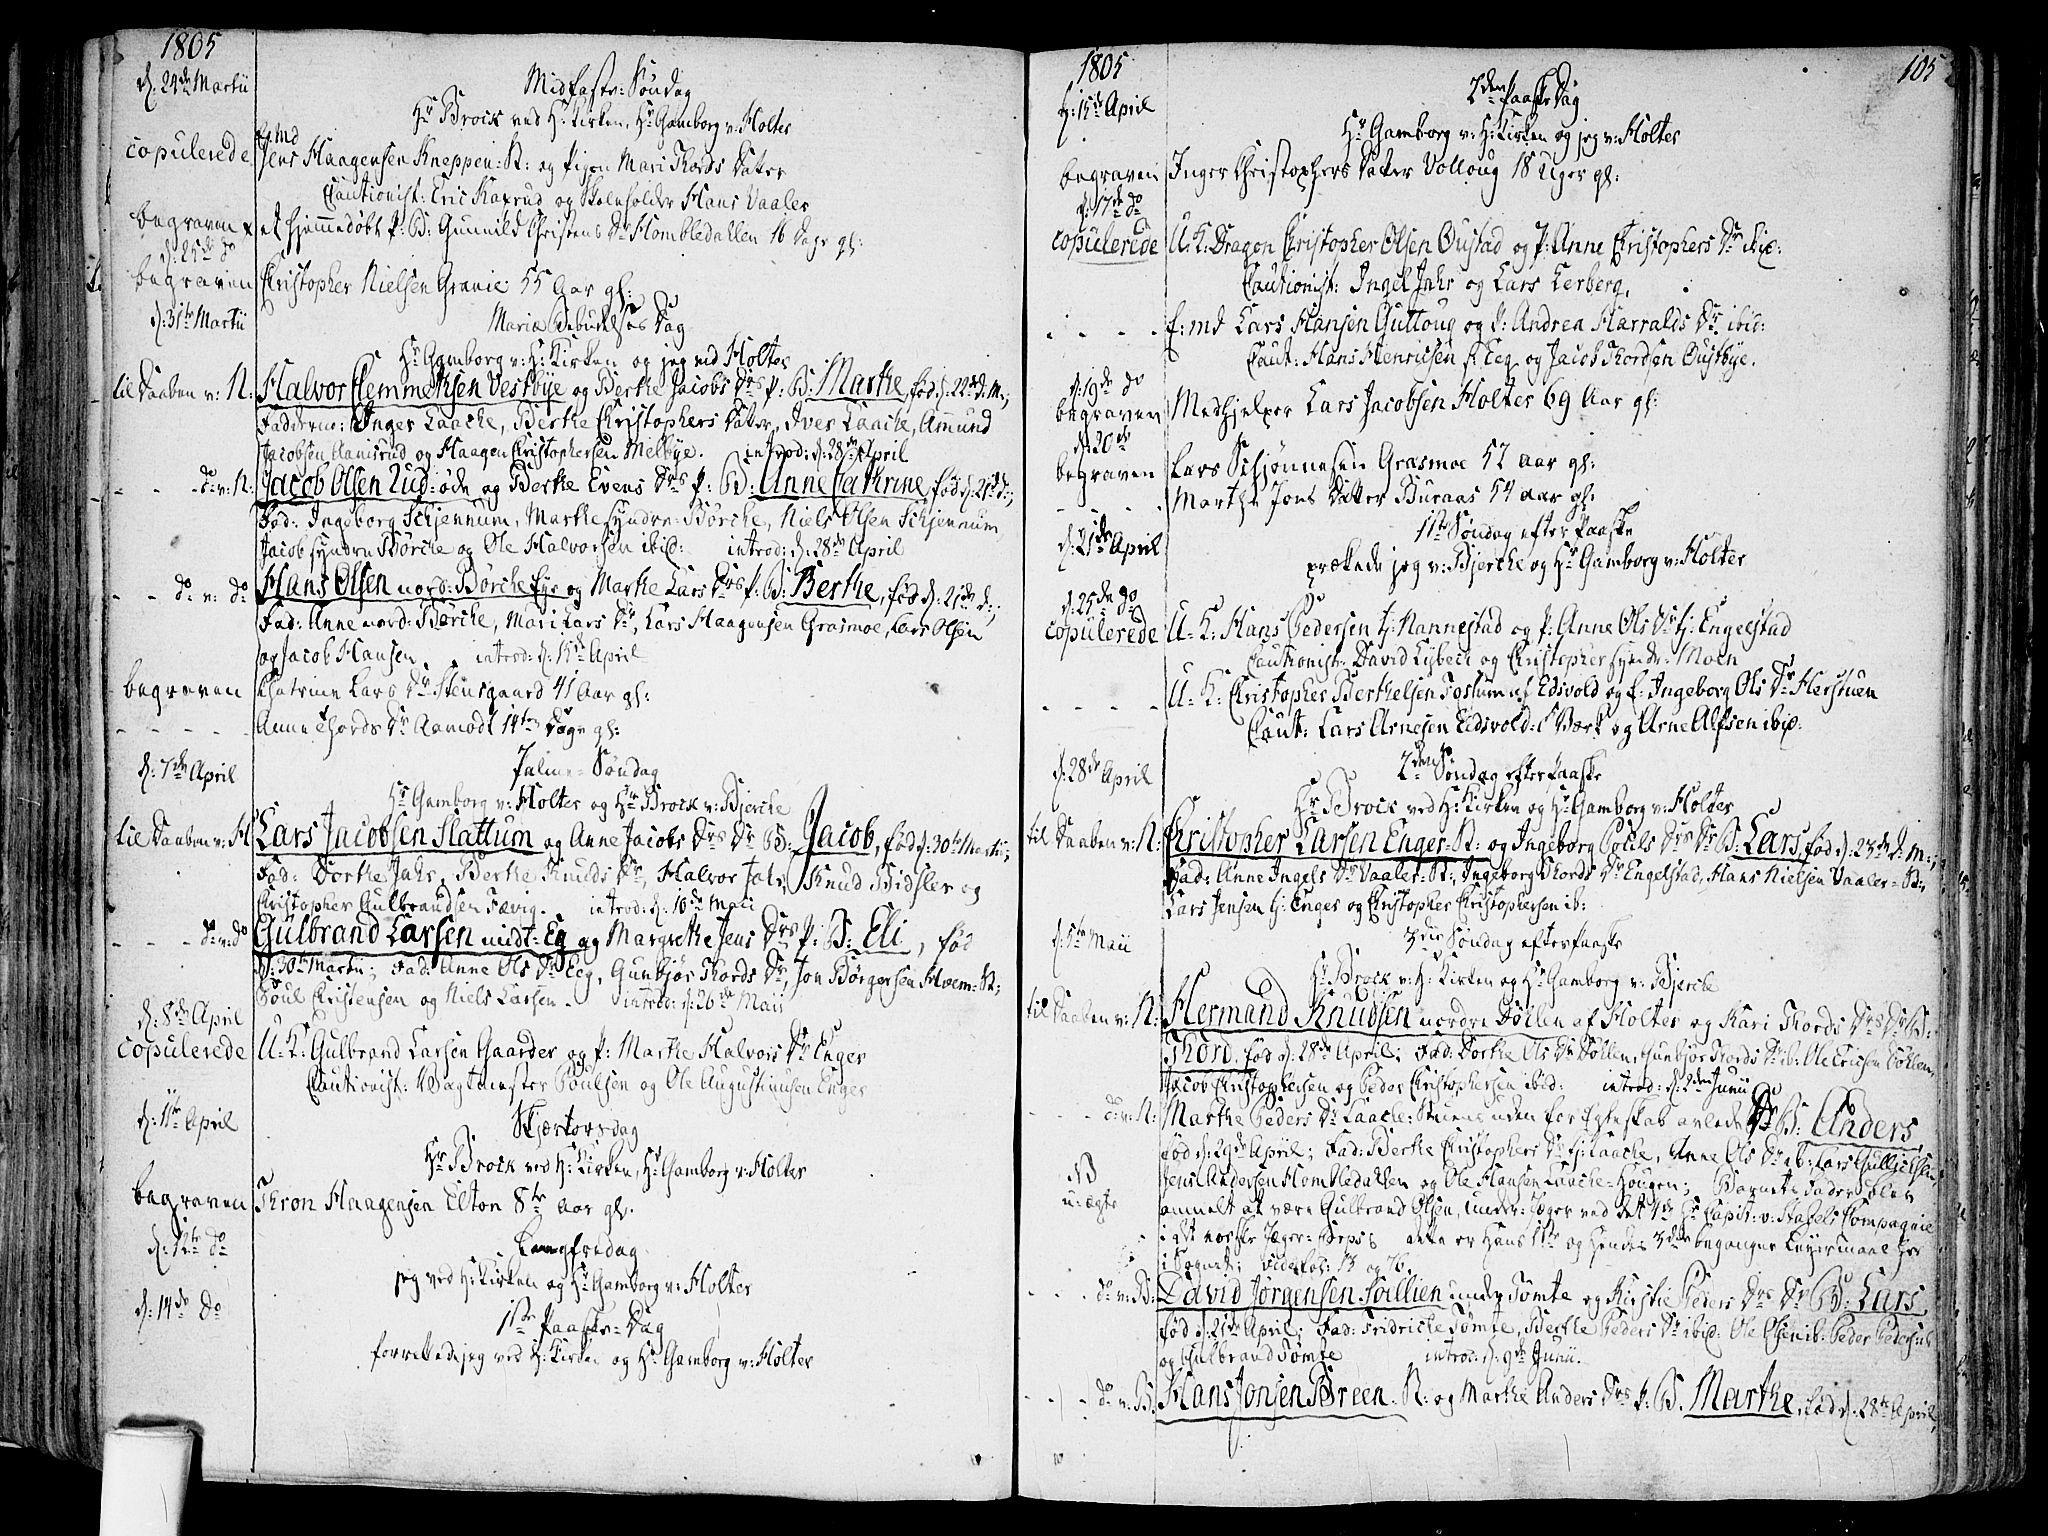 1805
d: 24de Martii
Midfaste-Søndag
Hr Brock ved H: Kirken, Hr Gamborg v: Holter
copulerede E: md Jens Haagensen Kneppen: St: og Pigen Mari Thords Datter
Cautionist: Eric Kaxrud og Skoleholder Hans Vaaler
begraven et hjemmedøbt p: B: Gunnild Christens Dr Hombledallen 16 Dage gl:
d: 25de do
begraven Christopher Nielsen Gravie 55 Aar gl:
d: 31te Martii
Mariæ Bebudelses Dag
Hr Gamborg v: H: Kirken og jeg ved Holter
til Daaben v: N: Halvor Clemmethsen Vestbye og Berthe Jacobs Drs p: B: Marthe, fød d: 22de d: M:;
Fadderne: Inger Laache, Berthe Christophers Datter, Iver Laache, Amund
Jacobsen Aamsrud og Haagen Christophersen Melbye. introd: d: 28de April
- - - do v: N: Jacob Olsen Rud-øde og Berthe Evens Drs p: B: Anne Cathrine, fød d: 21de d:;
Fad: Ingeborg Schjennum, Marthe syndre-Børche, Niels Olsen Schjennum
Jacob syndre Børche og Ole Halvorsen ibid: introd: d: 28de April
- - do v: do Hans Olsen nord: Børche Eye og Marthe Lars Drs p: B: Berthe, fød d: 21de d:;
Fad: Anne nord: Børche, Mari Lars Dr, Lars Haagensen Grasmoe, Lars Olsen
og Jacob Hansen. introd: d: 15de April
begraven Chatrine Lars Dr Stensgaard 41 Aar gl:
- - - - - Anne Thords Dr Aamodt 14ten Dage gl:
d: 7de April
Palme-Søndag
Hr Gamborg v: Holter og Hr Brock v: Bjerche
til Daaben v: H Lars Jacobsen Slattum og Anne Jacobs Drs Dr B: Jacob, fød d: 30te Martii;
Fad: Dorthe Jahr, Berthe Knuds Dr, Halvor Jahr, Knud Bidsler og
Christopher Gulbrandsen Fævig. introd: d: 10de Maii
- - - do v: do Gulbrand Larsen midt-Eg og Margrethe Jens Drs p: B: Eli, fød
d: 30te Martii; Fad: Anne Ols Dr Eeg, Gunbjør Thords Dr, Jon Børgersen Hvem: St:
Poul Christensen og Niels Larsen. introd: d: 26de Maii
d: 8de April
copulerede U: K: Gulbrand Larsen Gaarder og p: Marthe Halvors Dr Enger
Cautionist: Vagtmester Poulsen og Ole Augustinusen Enger
d: 11te April
Skjærtorsdag
Hr Brock ved H: Kirken, Hr Gamborg v: Holter
begraven Thron Haagensen Elton 8te Aar gl.
d: 12te do
Langfredag
jeg ved H: Kirken og Hr Gamborg v: Holter
d: 14de do
1ste Paaske-Dag
forrettede jeg ved H: Kirken og Hr Gamborg v: Holter
1805
105
d: 15de April
2den Paaske Dag
Hr Gamborg v: H: Kirken og jeg v: Holter
begraven Inger Christophers Datter Volloug 18 Uger gl:
d: 17de do
copulerede U: K: Dragon Christopher Olsen Bustad og P: Anne Christophers Dr ibid:
Cautionist: Ingel Jahr og Lars Lerberg.
- - - - E: md Lars Hansen Guttoug og P: Andrea Harralds Dr ibid:
Caut: Hans Henricsen s: Eeg og Jacob Thordsen Bustbye.
d: 19de do
begraven Medhjelper Lars Jacobsen Holter 69 Aar gl:
d: 20de
begraven Lars Schjønnesen Grasmoe 52 Aar gl:
- - - - Marthe Jons Datter Buraas 54 Aar gl:
1ste Søndag efter Paaske
d: 21de April
prækede jeg v: Bjerche og Hr Gamborg v: Holter
d: 25de do
copulerede U: K: Hans Pedersen tj: Nannestad og p: Anne Ols Dr tj: Engelstad
Cautionist: David Lybeck og Christopher syndr: Moen
- - - - U: K: Christopher Berthelsen Tosterud af Edsvold og E: Ingeborg Ols Dr Herstuen
Caut: Lars Arnesen Eidsvolds Værk og Arne Alfsen ibid.
d: 28de April
2den Søndag efter Paaske
Hr Brock ved H: Kirken og Hr Gamborg v: Holter
til Daaben v: N: Christopher Larsen Enger: St: og Ingeborg Povels Drs Dr B: Lars, fød d: 23de d: M:;
Fad: Anne Ingels Dr Vaaler-St:, Ingeborg Thords Dr Engelstad, Hans Nielsen Vaaler-St:,
Lars Jensen tj: Enger og Christopher Christophersen ib:
d: 5te Maii
3die Søndag efter Paaske
Hr Brock v: H: Kirken og Hr Gamborg v: Bjerche
til Daaben v: N: Hermand Knudsen nordre Døllen af Holter og Kari Thords Drs Dr B:
Thord, fød d: 28de April; Fad: Dorthe Ols Dr Døllen, Gunbjør Thords Dr ib: Ole Ericsen Døllen,
Jacob Christophersen og Peder Christophersen ibid: introd: d: 2den Junii
- - do v: N: Marthe Peders Dr Laache-Stuens uden for Egteskab avlede Dr B: Anders,
NB u-ægte
fød d: 29de April; Fad: Berthe Christophers Dr tj: Laache, Anne Ols Dr ib: Lars Gullichsen,
Jens Andersen Hombledallen og Ole Hansen Laache-Hougen; Barnets Fader blev
anmelt at være Gulbrand Olsen, under-Jæger ved det Hr Capit: v: Stabels Compagnie
i det norske Jæger-Corps. dette er Hans 1ste og Hendes 3die begangne Leyermaal her
i Sognet; vide fol: 13 og 76.
- - do v: B: David Jørgensen Sællien under Tømte og Kirstie Peders Drs Dr B: Lars,
fød d: 21de April; Fad: Fridriche Tømte, Berthe Peders Dr ibid: Ole Olsen ib: Peder Pedersen
og Gulbrand Tømte introd: d: 9de Junii.
- - do v: B: Hans Jonsen Breen: St: og Marthe Anders Drs p: B: Marthe, fød d: 28de April,